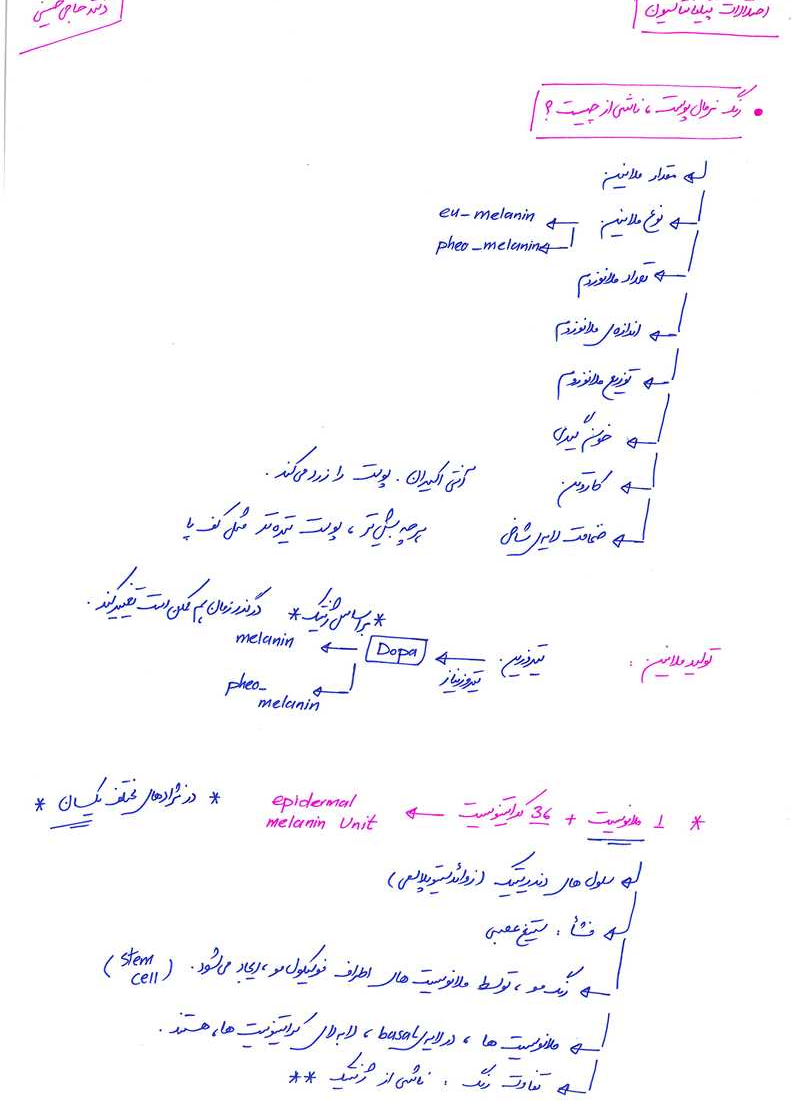 اختلالات پیگمانتاسیون
دکتر حاجی حسینی
• رنگ نرمال پوست، ناشی از چیست؟
مقدار ملانین
نوع ملانین ← eu-melanin
pheo-melanin
تعداد ملانوزوم
اندازه‌ی ملانوزوم
توزیع ملانوزوم
خون گیری
کاروتن
آنتی اکسیدان. پوست را زرد می‌کند.
ضخامت لایه‌ی شاخی
هرچه بیشتر، پوست تیره‌تر مثل کف پا
* براساس ژنتیک * در گذر زمان هم ممکن است تغییر کند.
تولید ملانین: تیروزین ← تیروزیناز Dopa ← melanin
pheo-melanin
* 1 ملانوسیت + 36 کراتینوسیت ← epidermal melanin Unit * در نژادهای مختلف یکسان *
سلول های دندریتیک (زوائد سیتوپلاسمی)
منشأ: ستیغ عصبی
رنگ مو، توسط ملانوسیت های اطراف فولیکول مو، ایجاد می‌شود. (stem cell)
ملانوسیت ها، در لایه‌ی basal، لابه‌لای کراتینوسیت ها، هستند.
تفاوت رنگ: ناشی از ژنتیک **